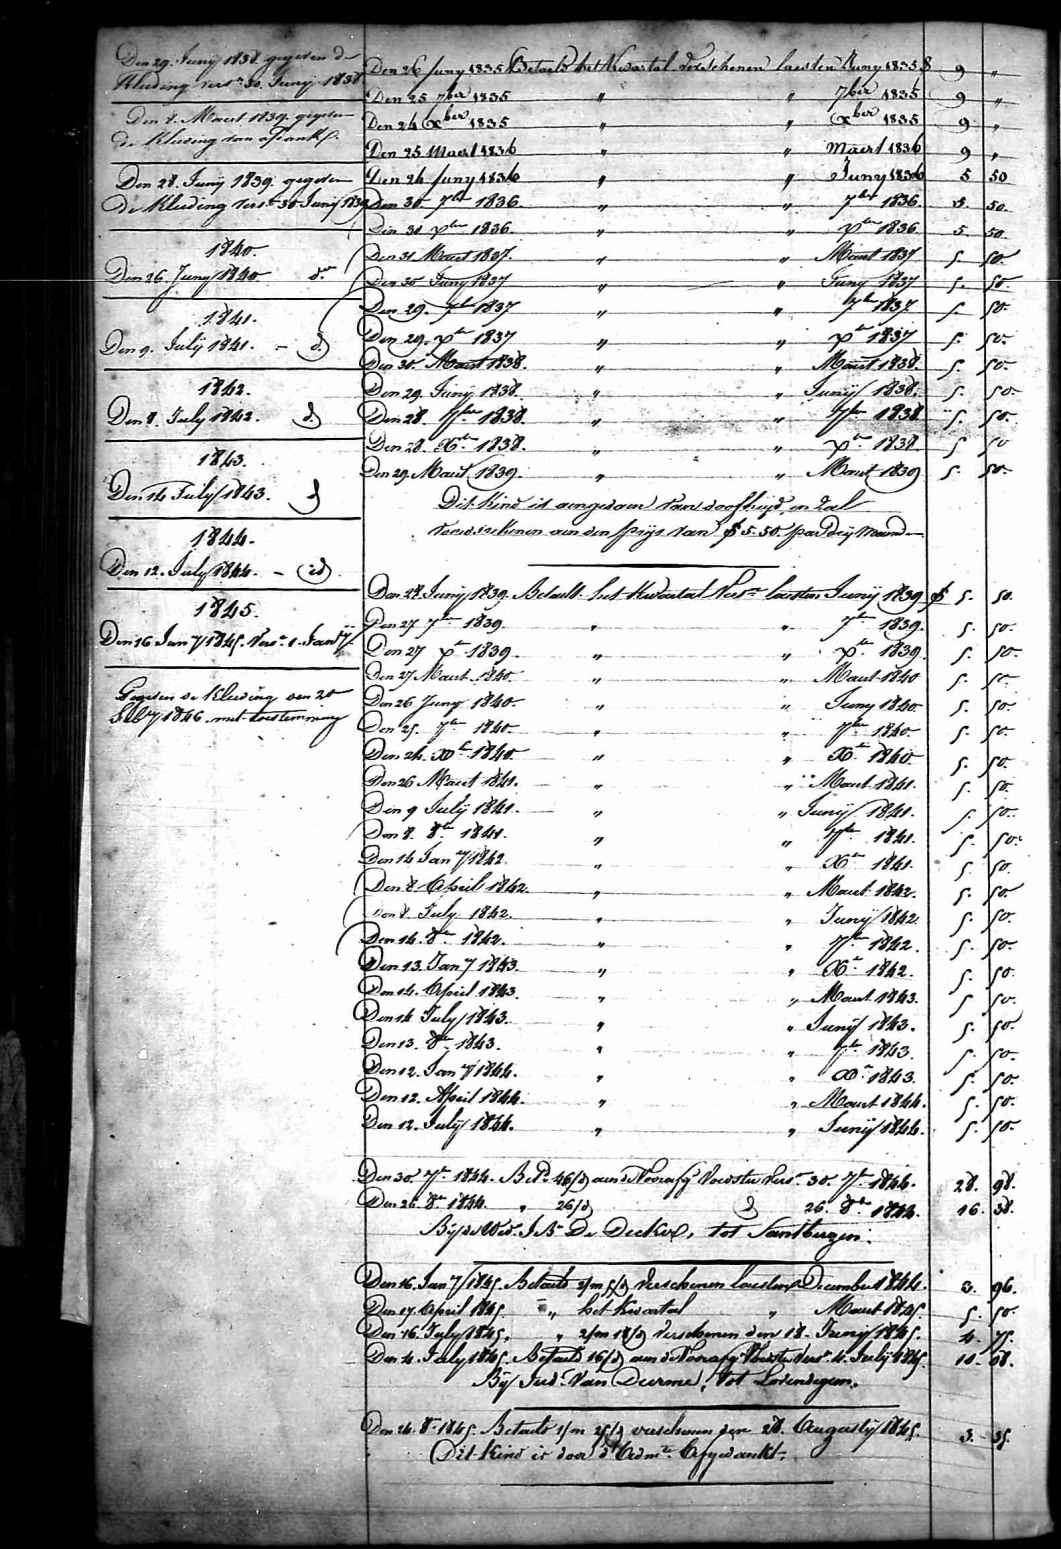 Den 29. Junij 1838 gegeven de
Kleeding vers. 30. Junij 1838
Den 8. Maert 1839. gegeven
de kleeding van
Den 28. Junij 1839. gegeven
de Kleeding vers. 30 Junij 1839
1840.
Den 26. Juny 1840 do
1841.
Den 9. Julij 1841. - d
1842.
Den 8. July 1842. d
1843.
Den 14 July 1843. d
1844.
Den 12. July 1844. - id
1845.
Den 16 Jany 1845. vers. 1. Jany
Gegeven de Kleeding den 20
1846 met toestemming
Den 26 Juny 1835 Betaeld het Kwartal verschenen laesten Juny 1835 § 9 "
Den 25 7ber 1835 " " 7ber 1835 9 "
Den 24 Xber 1835 " " Xber 1835 9 "
Den 25 Maert 1836 " " Maert 1836 9 "
Den 24 Juny 1836 " " Juny 1836 5 50
Den 30 7ber 1836. " " 7ber 1836. 5. 50.
Den 31 Xber 1836. " " Xber 1836. 5. 50.
Den 31 Maert 1837. " " Maert 1837 5. 50.
Den 30 Juny 1837 " " Juny 1837 5. 50.
Den 29. 7ber 1837 " " 7ber 1837. 5. 50.
Den 29. Xber 1837 " " Xber 1837 5. 50.
Den 30. Maert 1838. " " Maert 1838. 5. 50.
Den 29. Junij 1838. " " Junij 1838. 5. 50.
Den 28. 7ber 1838. " " 7ber 1838 5. 50.
Den 28. Xber 1838. " " Xber 1838. 5 50
Den 29. Maert 1839. " " Maert 1839 5. 50.
Dit Kind is aengedaen van doofheijd en zal
verschenen aen den prijs van § 5-50. par drij maend
Den 28. Junij 1839. Betaelt het Kwartal Vers. laesten Junij 1839 § 5. 50.
Den 27 7ber 1839. " " 7ber 1839. 5. 50.
Den 27 Xber 1839. " " Xber 1839. 5. 50.
Den 27 Maert 1840. " " Maert 1840 5. 50.
Den 26 Juny 1840. " " Juny 1840. 5. 50.
Den 25. 7ber 1840. " " 7ber 1840. 5. 50.
Den 24. Xber 1840. " " Xber 1840. 5. 50.
Den 26 Maert 1841. " " Maert 1841. 5. 50.
Den 9 Julij 1841. " " Junij 1841. 5. 50.
Den 8. 8ber 1841. " " 7ber 1841. 5. 50.
Den 14 Jany 1842. " " Xber 1841. 5. 50.
Den 8 April 1842. " " Maert 1842. 5. 50
Den 8. July 1842. " " Junij 1842 5. 50.
Den 14. 8ber 1842. " " 7ber 1842. 5. 50.
Den 13. Jany 1843. " " Xber 1842. 5. 50.
Den 14. April 1843. " " Maert 1843. 5. 50.
Den 14 July 1843. " " Junij 1843. 5. 50.
Den 13. 8ber 1843. " " 7ber 1843. 5. 50.
Den 12. Jany 1844. " " Xber 1843. 5. 50.
Den 12. April 1844. " " Maert 1844. 5. 50.
Den 12. July 1844. " " Junij 1844. 5. 50.
Den 30. 7ber 1844. Betd 46/d aen de Voorafg. Voedster vers. 30. 7ber 1844. 28. 98.
Den 26. 8ber 1844. " 26/d d 26. 8ber 1844. 16. 38.
Bij de Wed. J. Bte De Decker, tot Santbergen.
Den 16. Jany 1845. Betaeld 2/m 5/d verschenen laesten December 1844. 3. 96.
Den 17 April 1845. " het Kwartal " Maert 1845. 5. 50.
Den 16. July 1845. " 2/m 18/d verschenen den 18. Junij 1845. 4. 75.
Den 4. July 1845. Betaeld 16/d aen de Voorafg. Voedster vers. 4. Julij 1845. 10. 08.
Bij Jud. Van Deurme, tot Lovendegem.
Den 24. 8ber 1845. Betaeld 1/m 25/d verschenen den 28. Augusty 1845. 3. 35.
Dit Kind is door d'Adm. Afgedankt.